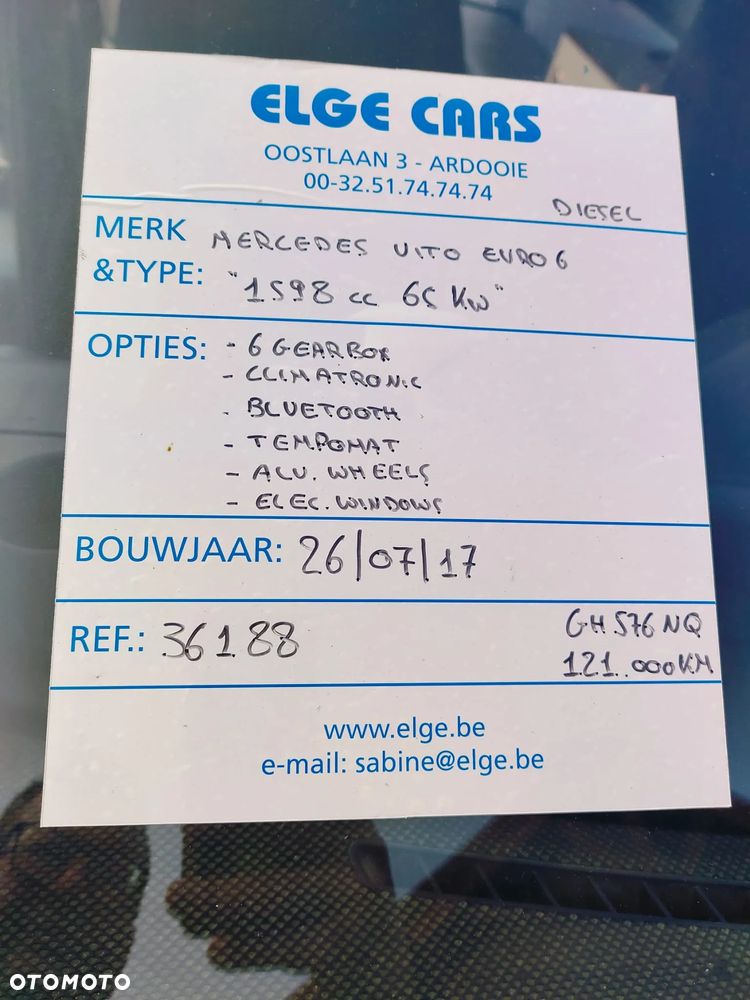 ELGE CARS
OOSTLAAN 3 - ARDOOIE
00-32.51.74.74.74
DIESEL
MERK MERCEDES VITO EURO 6
&TYPE: "1598 cc 65 KW"
OPTIES: - 6 GEARBOX
- CLIMATRONIC
- BLUETOOTH
- TEMPOMAT
- ALU. WHEELS
- ELEC. WINDOWS
BOUWJAAR: 26/07/17
REF.: 36188
GH 576 NQ
121.000KM
www.elge.be
e-mail: sabine@elge.be
OTOMOTO